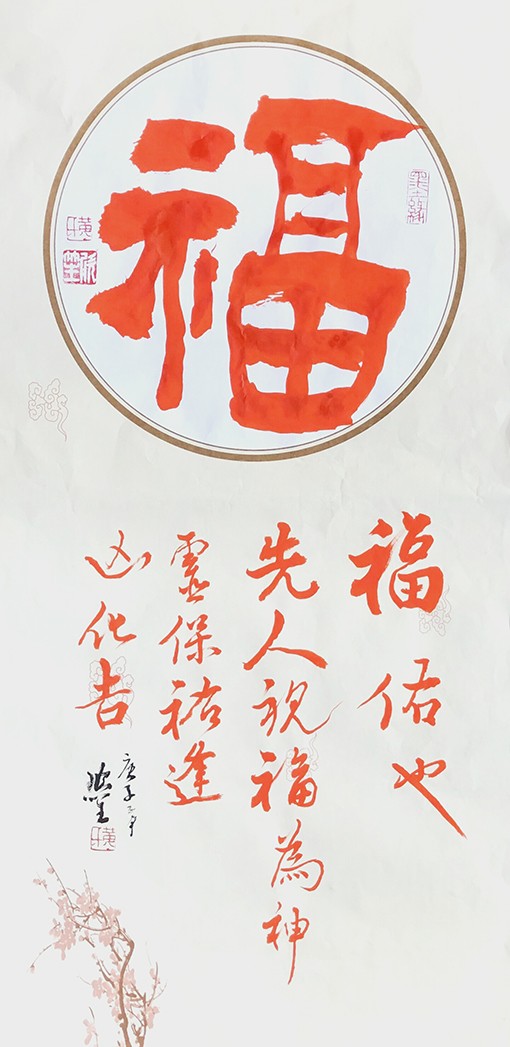 福
墨缘
黄
福佑也
先人視福為神
靈保祐逢
凶化吉
庚子
黄